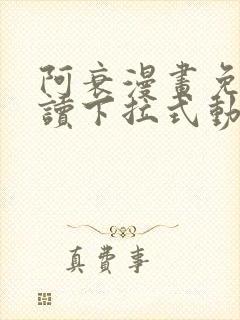 阿衰漫畫免
讀下拉式動
真費事